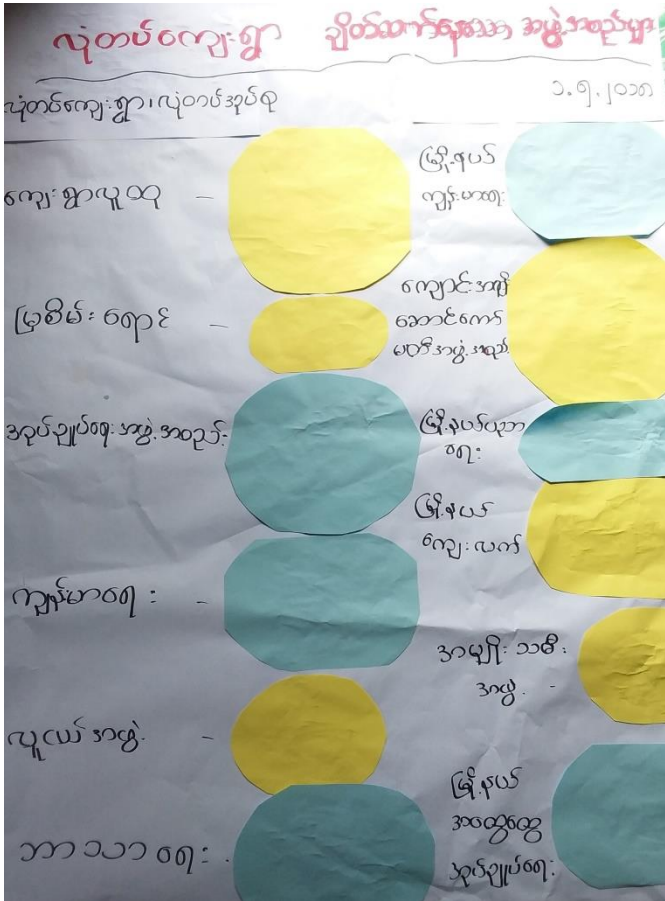 လုံတပ်ကျေးရွာ ချိတ်ဆက်နေသော အဖွဲ့အစည်းများ
လုံတပ်ကျေးရွာ၊လုံတပ်အုပ်စု
၁.၅.၂၀၁၈
ကျေးရွာလူထု -
မြစိမ်းရောင် -
အုပ်ချုပ်ရေးအဖွဲ့အစည်း
ကျန်းမာရေး -
လူငယ်အဖွဲ့ -
ဘာသာရေး -
မြို့နယ်
ကျန်းမာရေး
ကျောင်းအကျိုး
ဆောင်ကော်
မတီအဖွဲ့အစည်း
မြို့နယ်ပညာ
ရေး
မြို့နယ်
ကျေးလက်
အမျိုးသမီး
အဖွဲ့ -
မြို့နယ်
အထွေထွေ
အုပ်ချုပ်ရေး